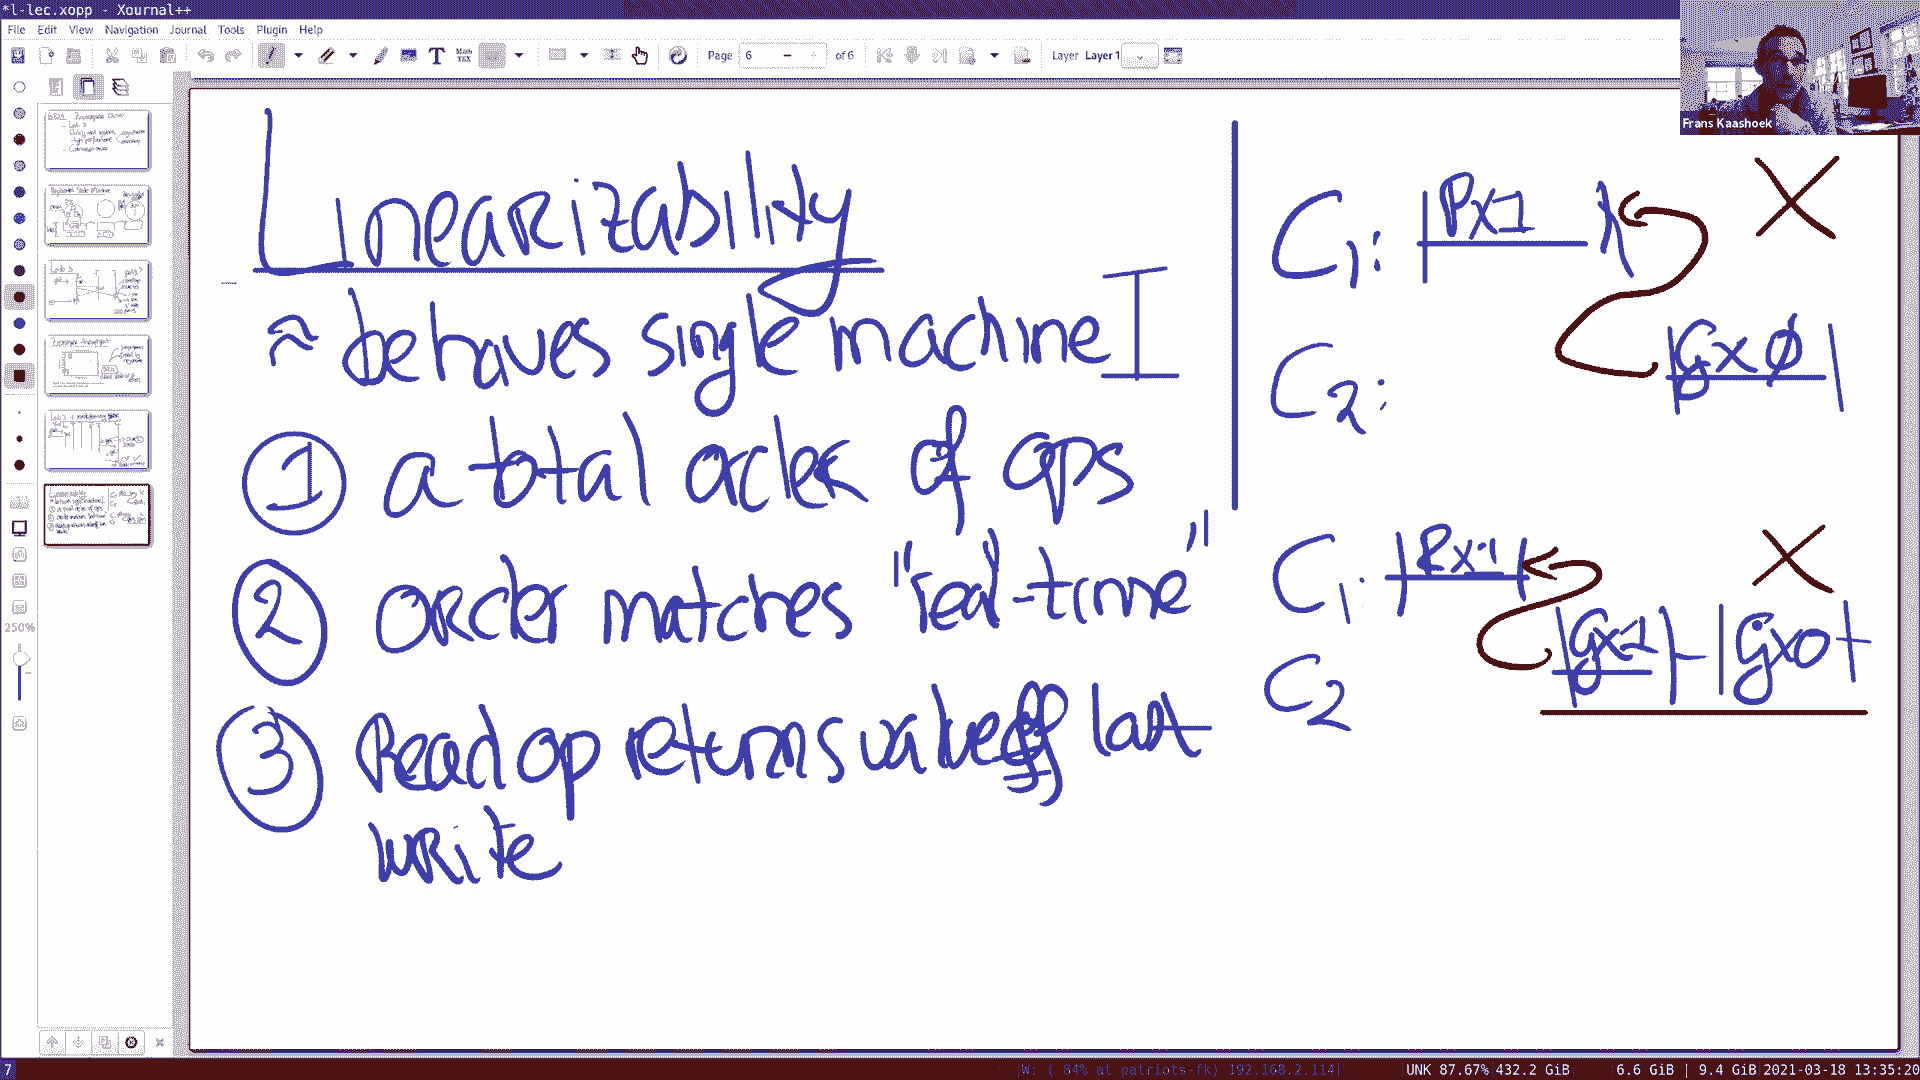 *l-lec.xopp - Xournal++
File Edit View Navigation Journal Tools Plugin Help
Page 6 of 6 Layer Layer 1
Frans Kaashoek
Linearizability
≈ behaves single machine
① a total order of ops
② order matches "real-time"
③ Read op returns value of last
write
C1: Px1
C2: Gx0
C1: Rx1
C2 Gx1 Gx0
250%
7
W: ( 84% at patriots-fk) 192.168.2.114| UNK 87.67%|432.2 GiB 6.6 GiB | 9.4 GiB|2021-03-18 13:35:20